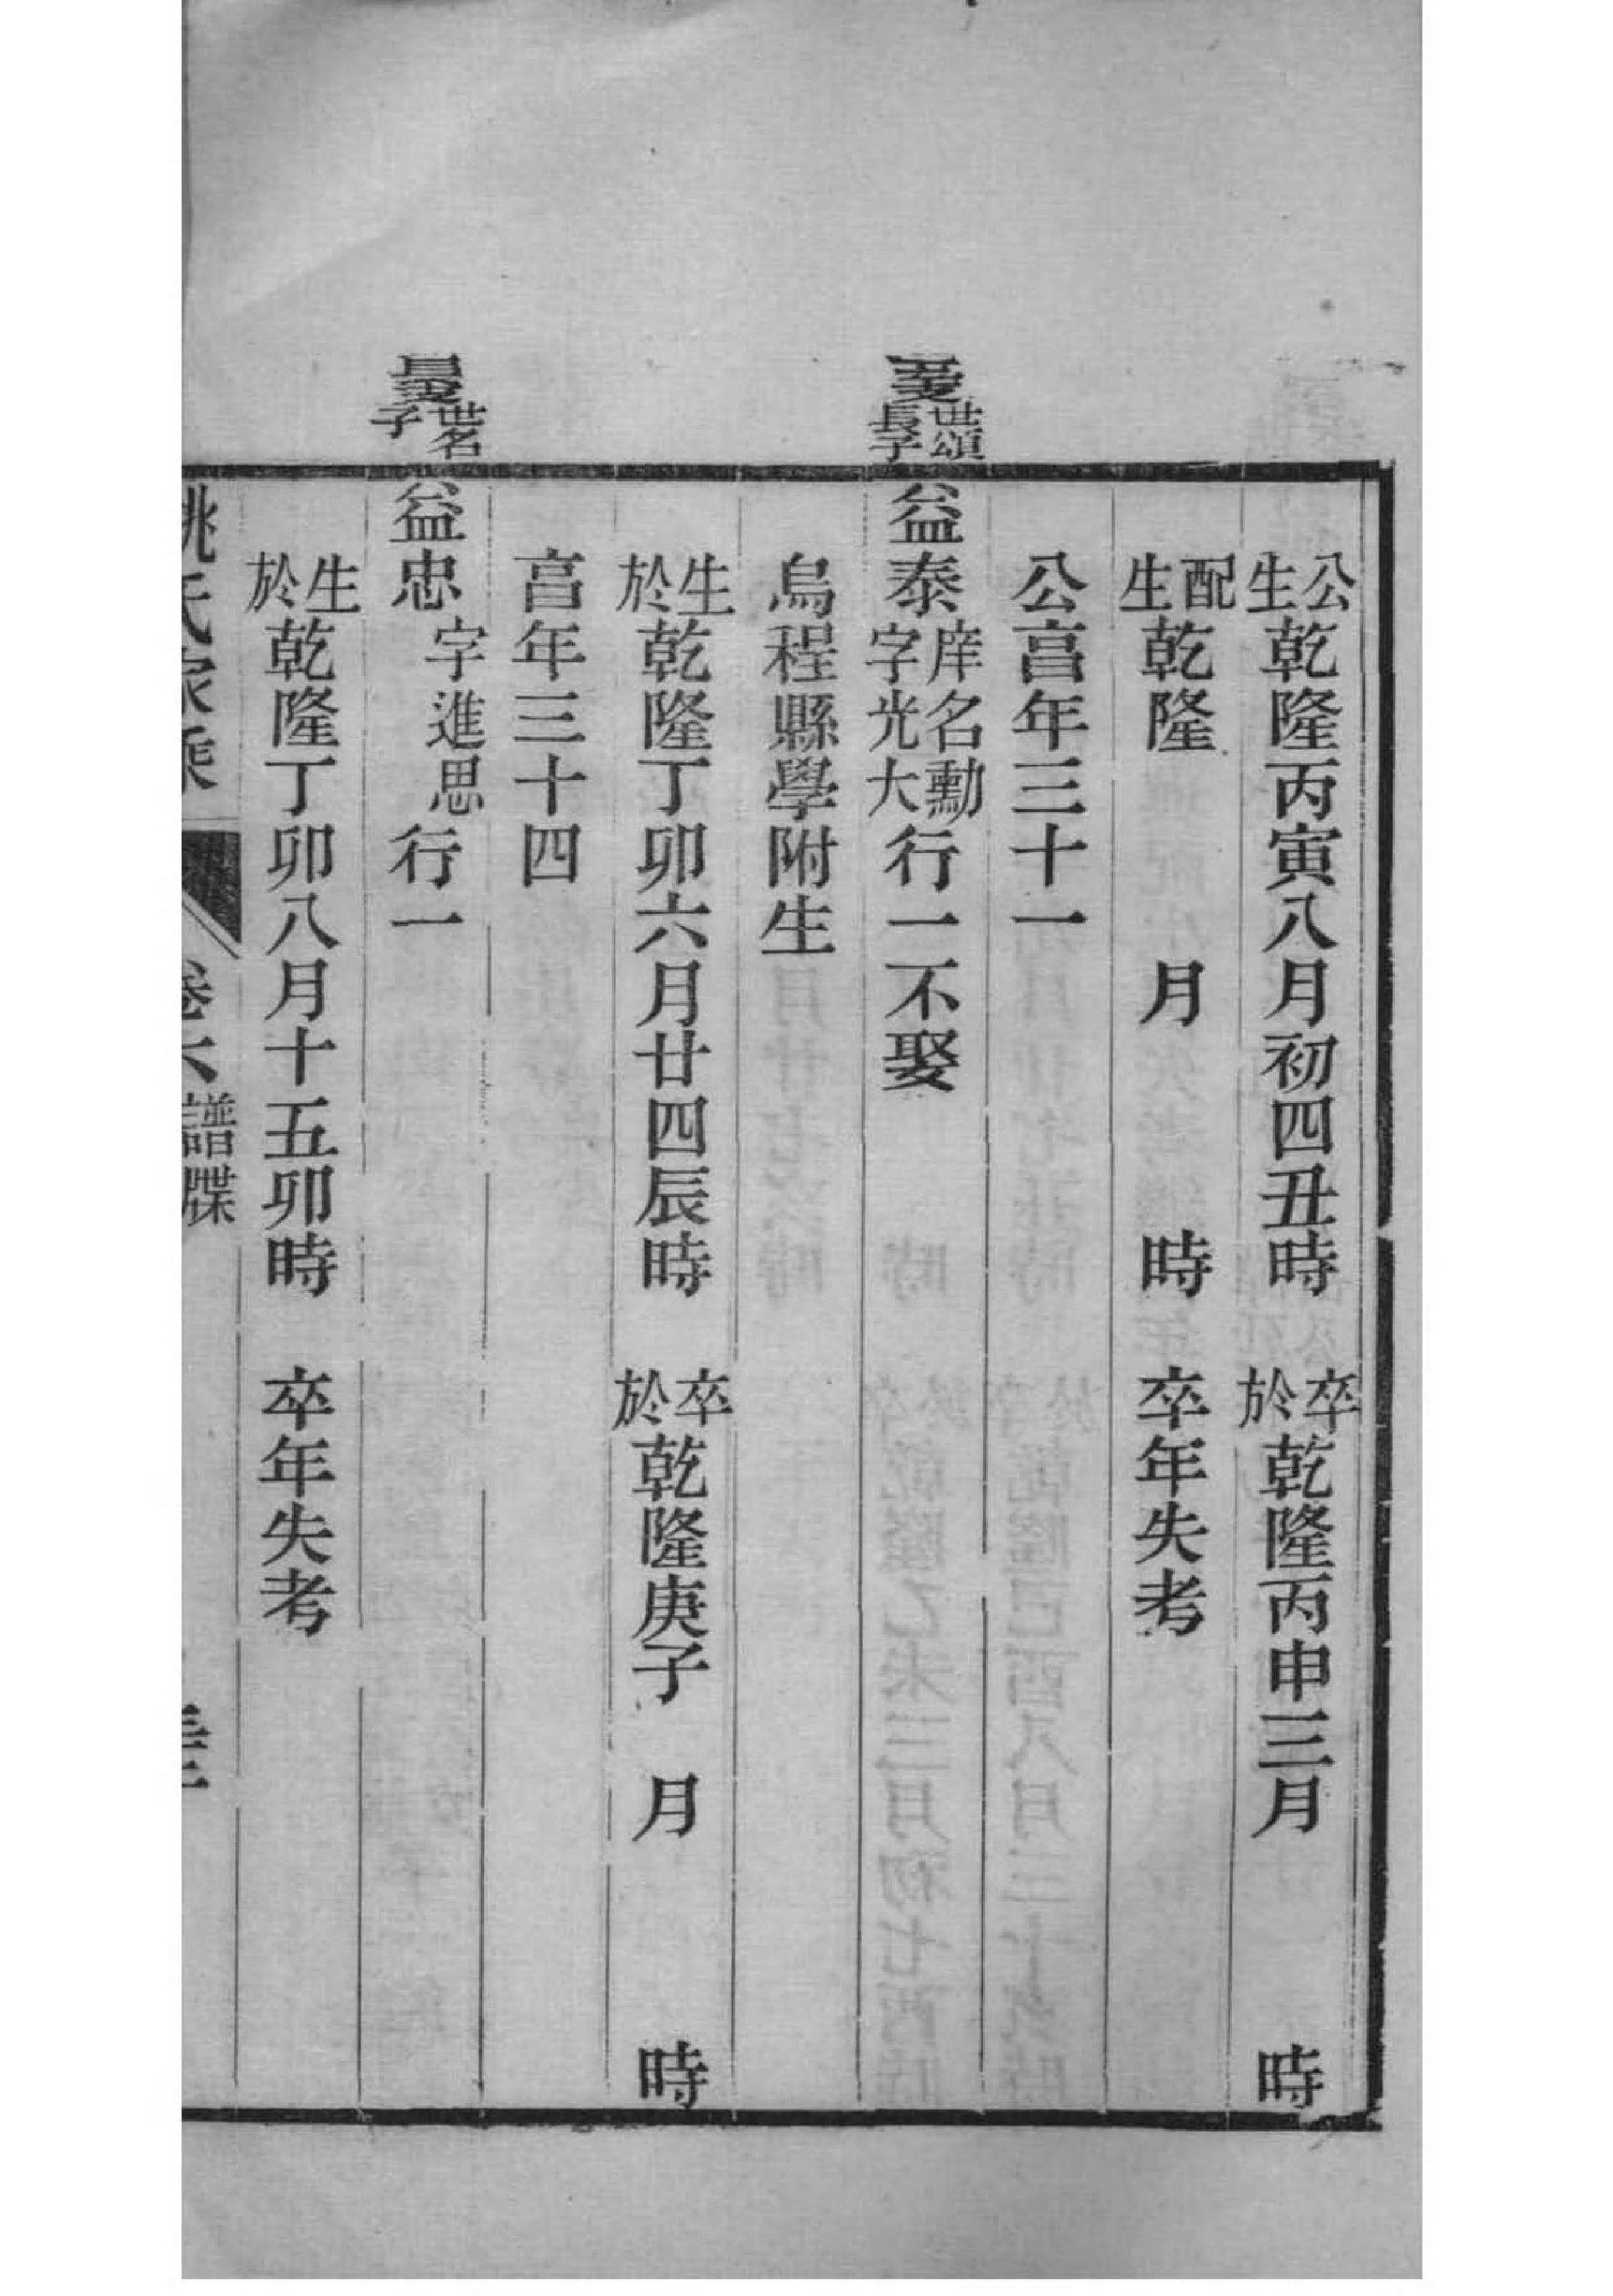 公生乾隆丙寅八月初四丑時 卒於乾隆丙申三月 時
配生乾隆 月 時 卒年失考
公亯年三十一
世頌長子 益泰庠名勳字光大行一不娶
烏程縣學附生
生於乾隆丁卯六月廿四辰時 卒於乾隆庚子 月 時
亯年三十四
世名子 益忠字進思行一
生於乾隆丁卯八月十五卯時 卒年失考
姚氏家乘 卷六 譜牒